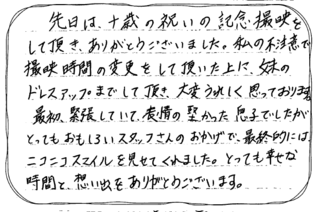 先日は、十歳の祝いの記念撮映を
して頂き、ありがとうございました。私の不注意で
撮映時間の変更をして頂いた上に、妹の
ドレスアップまでして頂き、大変うれしく思っております。
最初、緊張していて、表情の堅かった息子でしたが
とってもおもしろいスタッフさんのおかげで、最終的には、
ニコニコスマイルを見せてくれました。とっても幸せな
時間と、想い出をありがとうございます。